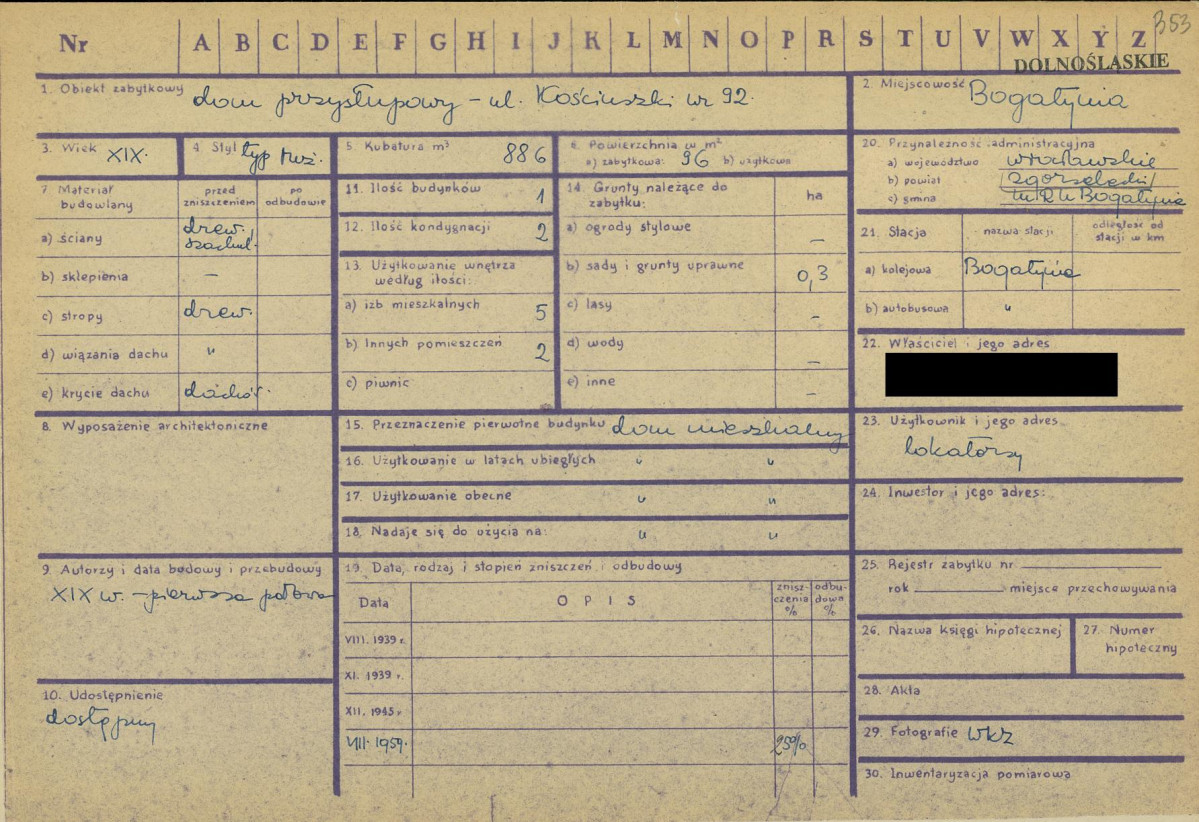 B53
Nr A B C D E F G H I J K L M N O P R S T U V W X Y Z
DOLNOŚLĄSKIE
1. Obiekt zabytkowy dom przysłupowy – ul. Kościuszki nr 92.
2. Miejscowość Bogatynia
3. Wiek XIX.
4. Styl typ łuż.
5. Kubatura m³ 886
6. Powierzchnia w m²
a) zabytkowa: 96 b) użytkowa
20. Przynależność administracyjna
a) województwo wrocławskie
b) powiat zgorzelecki
c) gmina M.R.N Bogatynia
7. Materiał budowlany
przed zniszczeniem
po odbudowie
a) ściany drew. szachul.
b) sklepienia –
c) stropy drew.
d) wiązania dachu "
e) krycie dachu dachów.
11. Ilość budynków 1
12. Ilość kondygnacji 2
13. Użytkowanie wnętrza
według ilości:
a) izb mieszkalnych 5
b) Innych pomieszczeń 2
c) piwnic
14. Grunty należące do
zabytku: ha
a) ogrody stylowe –
b) sady i grunty uprawne 0,3
c) lasy –
d) wody –
e) inne –
21. Stacja nazwa stacji odległość od stacji w km
a) kolejowa Bogatynia
b) autobusowa "
22. Właściciel i jego adres
8. Wyposażenie architektoniczne
15. Przeznaczenie pierwotne budynku dom mieszkalny
16. Użytkowanie w latach ubiegłych " "
17. Użytkowanie obecne " "
18. Nadaje się do użycia na: " "
23. Użytkownik i jego adres
lokatorzy
24. Inwestor i jego adres:
9. Autorzy i data budowy i przebudowy
XIX w. – pierwsza połowa
10. Udostępnienie
dostępny
19. Data, rodzaj i stopień zniszczeń i odbudowy
Data OPIS znisz-czenia % odbu-dowa %
VIII. 1939 r.
XI. 1939 r.
XII. 1945 r.
VIII. 1959. 25%
25. Rejestr zabytku nr
rok miejsce przechowywania
26. Nazwa księgi hipotecznej
27. Numer
hipoteczny
28. Akta
29. Fotografie WKZ
30. Inwentaryzacja pomiarowa